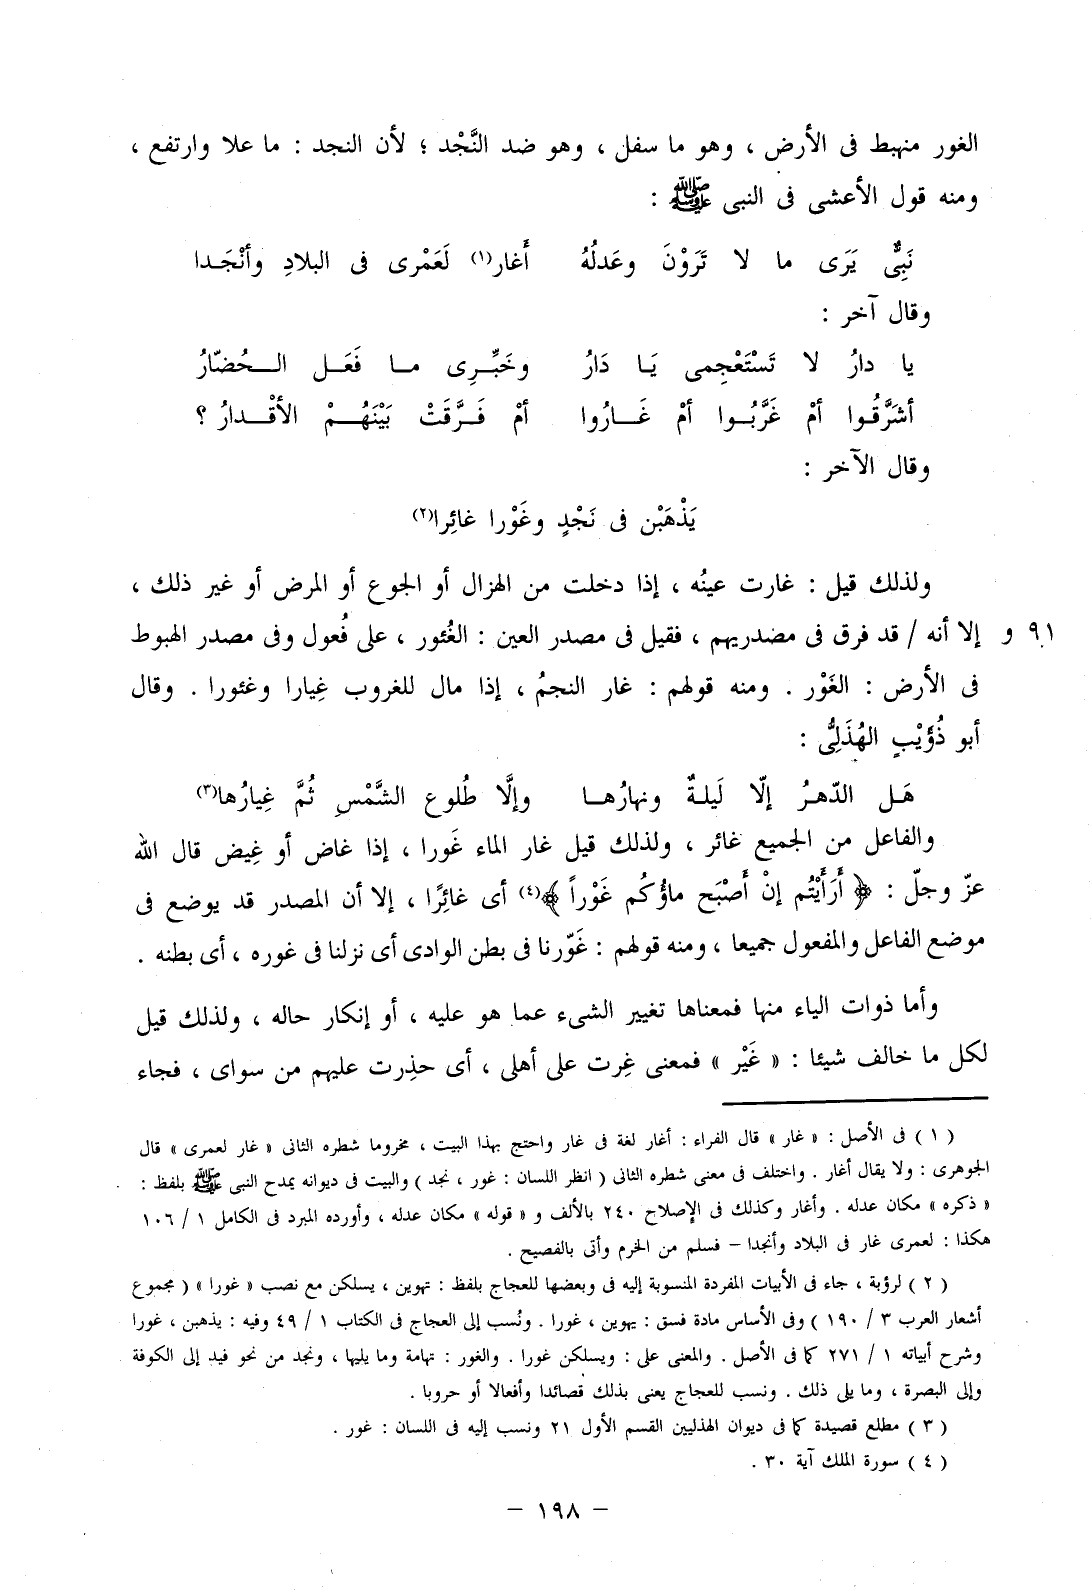 الغور منهبط فى الأرض ، وهو ما سفل ، وهو ضد النَّجْد ؛ لأن النجد : ما علا وارتفع ،
ومنه قول الأعشى فى النبى ﷺ :
نَبِىٌّ يَرَى ما لا تَرَوْنَ وعَدلُهُ أَغار(١) لَعَمْرى فى البلادِ وأنْجَدا
وقال آخر :
يا دارُ لا تَسْتَعْجِمى يَا دَارُ وخَبِّرِى ما فَعَل الحُضّارُ
أشَرَّقُوا أمْ غَرَّبُوا أمْ غَارُوا أمْ فَرَّقَتْ بَيْنَهُمْ الأقْدارُ ؟
وقال الآخر :
يَذْهَبْن فى نَجْدٍ وغَوْرا غائِرا(٢)
ولذلك قيل : غارت عينُه ، إذا دخلت من الهزال أو الجوع أو المرض أو غير ذلك ،
٩١ و إلا أنه / قد فرق فى مصدريهم ، فقيل فى مصدر العين : الغُئور ، على فُعول وفى مصدر الهبوط
فى الأرض : الغَوْر . ومنه قولهم : غار النجمُ ، إذا مال للغروب غِيارا وغئورا . وقال
أبو ذُؤَيْبٍ الهُذَلِىُّ :
هَل الدّهرُ إلّا لَيلةٌ ونهارُها وإلَّا طُلوع الشَّمْسِ ثُمَّ غِيارُها(٣)
والفاعل من الجميع غائر ، ولذلك قيل غار الماء غَورا ، إذا غاض أو غِيض قال الله
عزّ وجلّ : ﴿ أَرَأَيْتُم إنْ أَصْبَح ماؤُكُم غَوْراً ﴾(٤) أى غائِرًا ، إلا أن المصدر قد يوضع فى
موضع الفاعل والمفعول جميعا ، ومنه قولهم : غَوّرنا فى بطن الوادى أى نزلنا فى غوره ، أى بطنه .
وأما ذوات الياء منها فمعناها تغيير الشىء عما هو عليه ، أو إنكار حاله ، ولذلك قيل
لكل ما خالف شيئا : « غَيْر » فمعنى غِرت على أهلى ، أى حذِرت عليهم من سواى ، فجاء
( ١ ) فى الأصل : « غار » قال الفراء : أغار لغة فى غار واحتج بهذا البيت ، مخروما شطره الثانى « غار لعمرى » قال
الجوهرى : ولا يقال أغار . واختلف فى معنى شطره الثانى ( انظر اللسان : غور ، نجد ) والبيت فى ديوانه يمدح النبى ﷺ بلفظ :
« ذكره » مكان عدله . وأغار وكذلك فى الإصلاح ٢٤٠ بالألف و « قوله » مكان عدله ، وأورده المبرد فى الكامل ١ / ١٠٦
هكذا : لعمرى غار فى البلاد وأنجدا – فسلم من الخرم وأتى بالفصيح .
( ٢ ) لرؤبة ، جاء فى الأبيات المفردة المنسوبة إليه فى وبعضها للعجاج بلفظ : تهوين ، يسلكن مع نصب « غورا » ( مجموع
أشعار العرب ٣ / ١٩٠ ) وفى الأساس مادة فسق : يهوين ، غورا . ونُسب إلى العجاج فى الكتاب ١ / ٤٩ وفيه : يذهبن ، غورا
وشرح أبياته ١ / ٢٧١ كما فى الأصل . والمعنى على : ويسلكن غورا . والغور : تهامة وما يليها ، ونجد من نحو فيد إلى الكوفة
وإلى البصرة ، وما يلى ذلك . ونسب للعجاج يعنى بذلك قصائدا وأفعالا أو حروبا .
( ٣ ) مطلع قصيدة كما فى ديوان الهذليين القسم الأول ٢١ ونسب إليه فى اللسان : غور .
( ٤ ) سورة الملك آية ٣٠ .
– ١٩٨ –